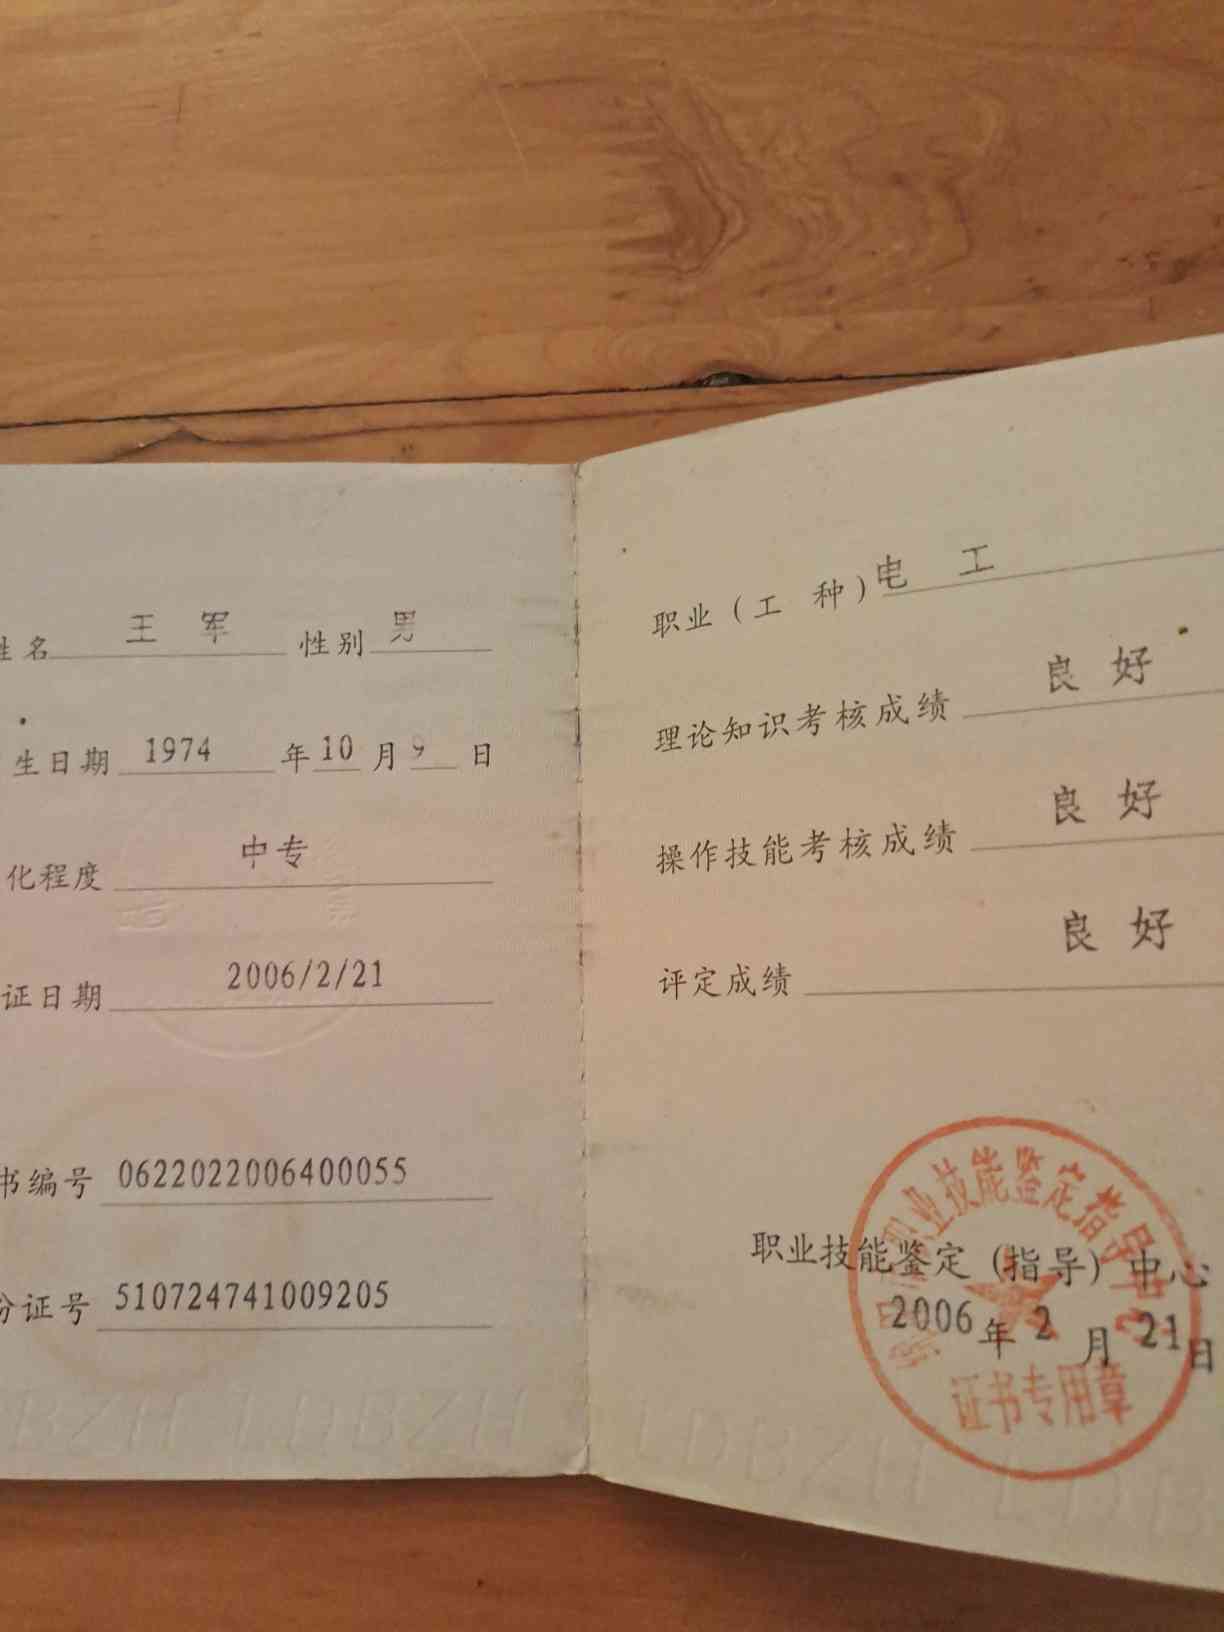 姓名 王 军 性别 男
生日期 1974 年 10 月 9 日
化程度 中专
证日期 2006/2/21
书编号 0622022006400055
份证号 510724741009205
职业（工 种） 电 工
理论知识考核成绩 良 好
操作技能考核成绩 良 好
评定成绩 良 好
职业技能鉴定（指导）中心
2006 年 2 月 21 日
职业技能鉴定指导中心
证书专用章